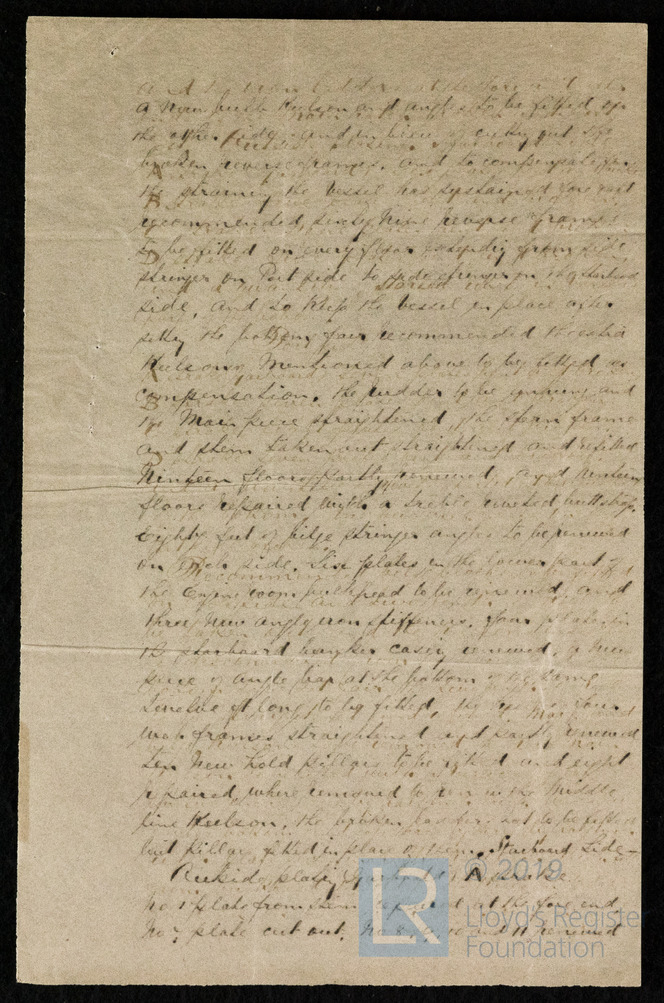 a New bulb Keelson and angles to be fitted on
the other side, and in lieu of cutting out the
broken reverse frames, and to compensate for
the straining the vessel has sustained
recommended, sixty Nine reverse frames
to be fitted on every floor from side
stringer on Port side to side stringer on the Starboard
side, and to keep the vessel in place after
setting the bottom fair recommended the extra
Keelsons Mentioned above to be fitted as
compensation. the rudder to be unhung and
the Main piece straightened, the stern frame
and taken out straightened and refitted
Nineteen floors partly renewed, and Nineteen
floors repaired with a treble riveted buttstrap.
Eighty feet of bilge stringer angles to be renewed
on Each side. Six plates in the lower part of
the Engine room bulkhead to be renewed, and
three New angle iron stiffeners. four plates in
the starboard bunker casing renewed, a New
piece of angle bar at the bottom of the same
twelve ft long to be fitted, the
web frames straightened and partly renewed
ten New hold pillars to be fitted and eight
repaired, where removed to in the Middle
line Keelson, the broken not to be fitted
but pillars fitted in place of them. Starboard Side –
A strake
No 1 plate from repaired at the fore end
No 7 plate cut out. No 8, 9, 10 and 11 renewed
© 2019
LR
Lloyd's Register
Foundation